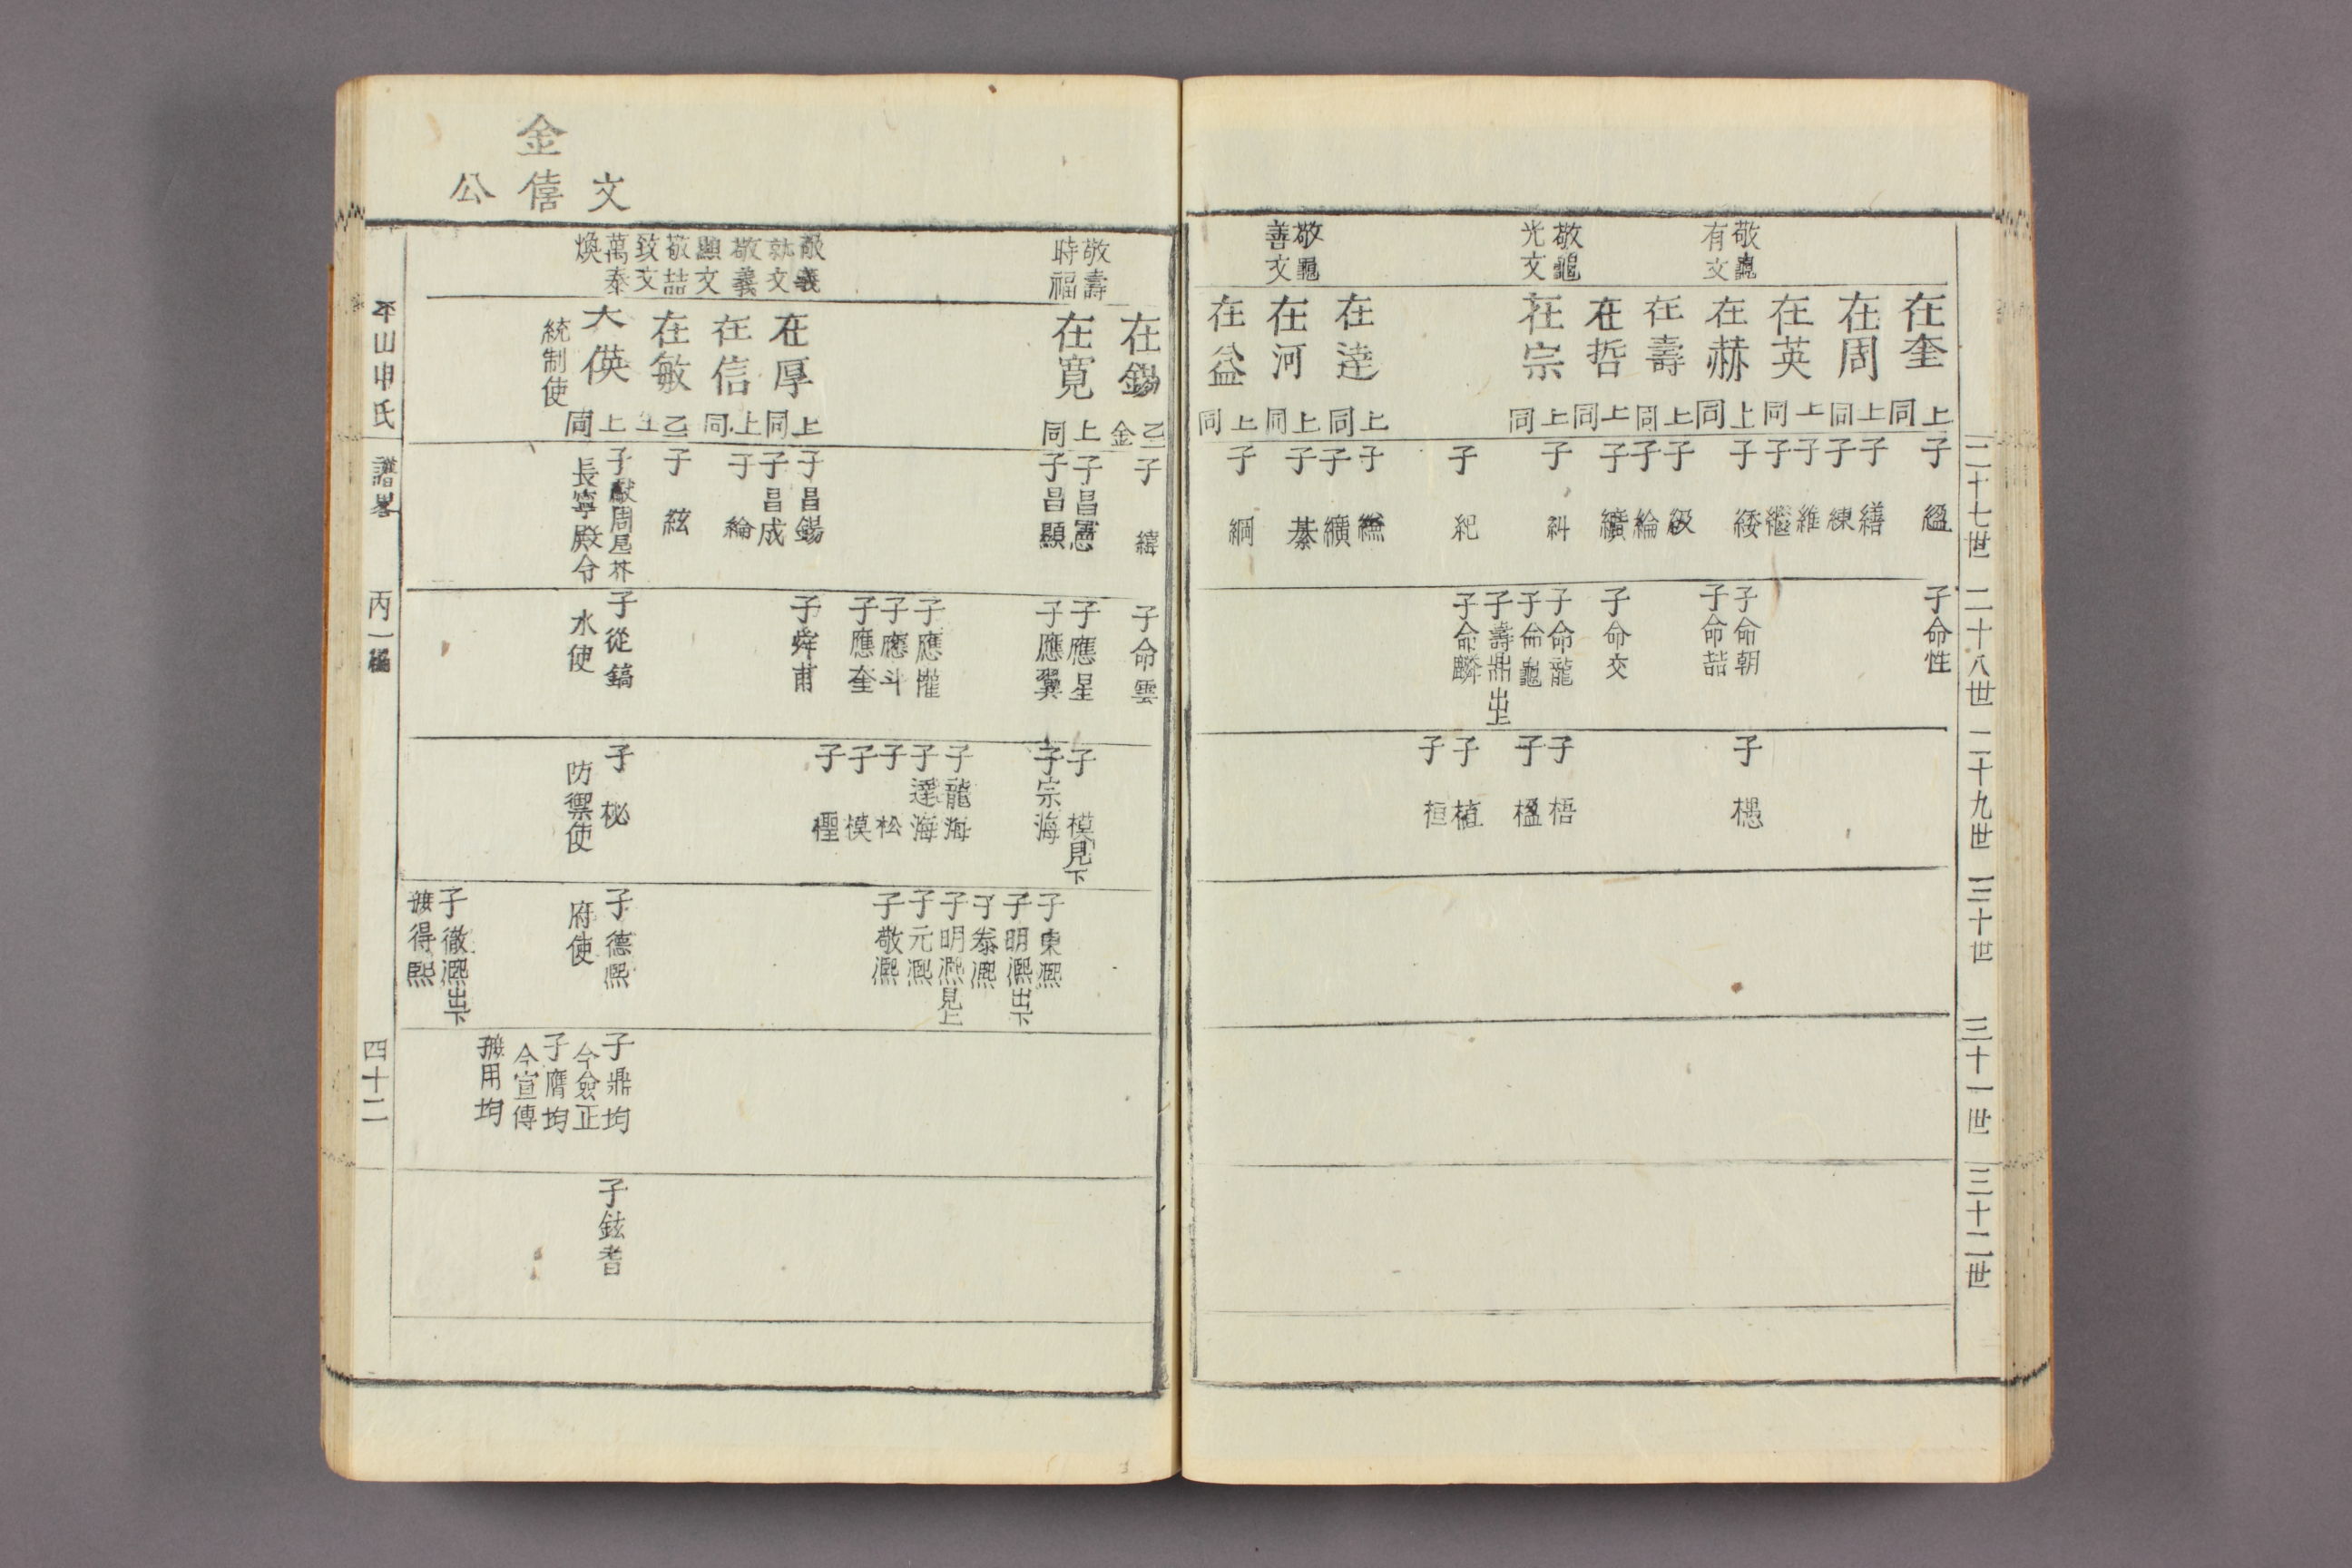 二十七世
二十八世
二十九世
三十世
三十一世
三十二世
敬龜
有文
敬龜
光文
敬龜
善文
在奎
上同
在周
上同
在英
上同
在赫
上同
在壽
上同
在哲
上同
在宗
上同
在達
上同
在河
上同
在益
上同
子縕
子繕
子練
子維
子繼
子緌
子級
子綸
子纊
子糾
子紀
子纊
子綦
子綱
子命性
子命朝
子命喆
子命交
子命龍
子命龜
子壽鼎出上
子命麟
子楒
子梧
子榲
子植
子桓
文僖公
金
敬壽
時福
敬義
就文
敬義
顯文
敬喆
致文
萬泰
煥
在錫
乙金
在寬
上同
在厚
上同
在信
上同
在敏
乙
大偀
上同
統制使
子緯
子昌憲
子昌顯
子昌錫
子昌成
子綸
子絃
子獻周
長寧殿令
子命雲
子應星
子應翼
子應權
子應斗
子應奎
子舜甫
子從鎬
水使
子模見下
子宗海
子龍海
子達海
子松
子模
子檉
子柲
防禦使
子東熙
子明熙出下
子泰熙
子明熙見上
子元熙
子敬熙
子德熙
府使
子徹熙出下
得熙
子鼎均
今僉正
子膺均
今宣傳
用均
子鉉耆
平山申氏
譜畧
丙一編
四十二